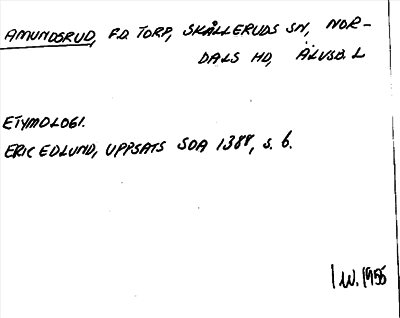 AMUNDSRUD, F.D. TORP, SKÅLLERUDS SN, NOR-
DALS HD, ÄLVSB. L
ETYMOLOGI.
ERIC EDLUND, UPPSATS SOA 1388, S. 6.
1955